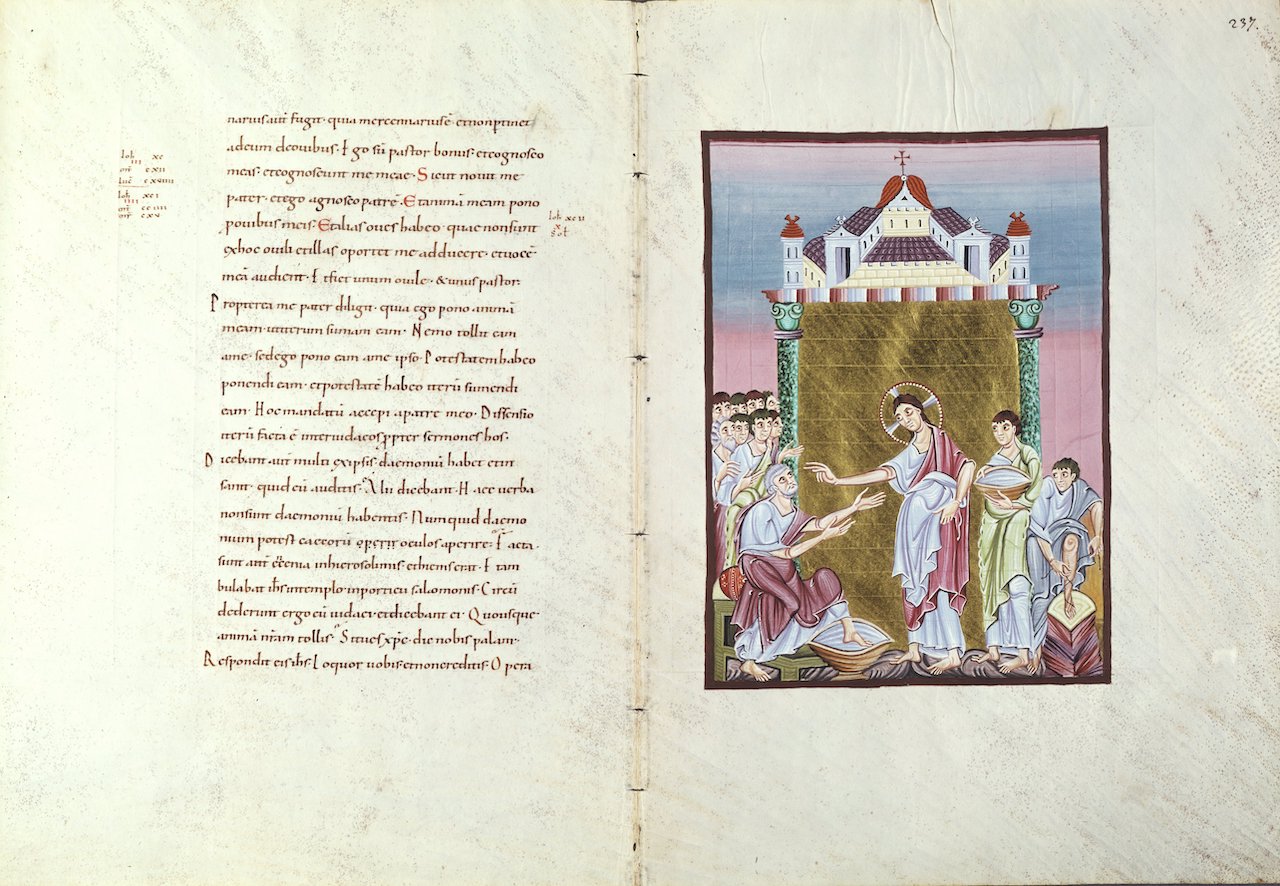 237.
nariusaut̄ fugit· quia mercennariusē· etnonp̄tinet
adeum deouibus· Ego sū pastor bonus· etcognosco
meas· etcognoscunt me meae· Sicut nouit me
pater· etego agnosco patrē· Etanimā meam pono
pouibus meis· Etalias oues habeo· quae nonsunt
exhoc ouili etillas oportet me adducere· etuocē
meā audient· Etfiet unum ouile· &unus pastor·
Propterea me pater diligit· quia ego pono animā
meam· utiterum sumam eam· Nemo tollit eam
ame· sedego pono eam ame ipso· Potestatemhabeo
ponendi eam· etpotestatē habeo iterū sumendi
eam· Hoc mandatū accepi apatre meo· Dissensio
iterū facta ē interiudaeos ppter sermones hos·
Dicebant aut̄ multi exipsis· daemoniū habet etin
sanit· quid eū auditis· Alii dicebant· Haec uerba
nonsunt daemoniū habentis· Numquid daemo
nium potest caecorū operir oculos aperire· Facta
sunt aut̄ encenia inhierosolimis· ethiemserat· Et am
bulabat ih̄s intemplo· inporticu salomonis· Circū
dederunt ergo eū iudaei· etdicebant ei· Quousque
animā nr̄am tollis· Situes xp̄c· dic nobis palam·
Respondit eis ih̄s· Loquor uobis· etnoncreditis· Opera
Ioh xc
III
mr̄ cxii
Ioh xci
IIII
Ioh xcii
x